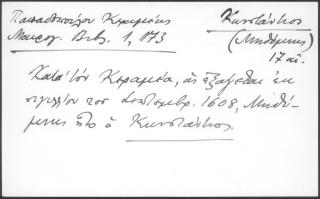 Παπαδοπούλου Κεραμέως
Μαυρογ. Βιβ. 1, 173
Κωνστάντιος
(Μηθύμνης)
17 αἰ.
Κατὰ τὸν Κεραμέα, ὡς ἐξάγεται ἐκ
σιγιλλίου του Σεπτεμβρ. 1608, Μηθύ-
μνης ἦτο ὁ Κωνστάντιος.